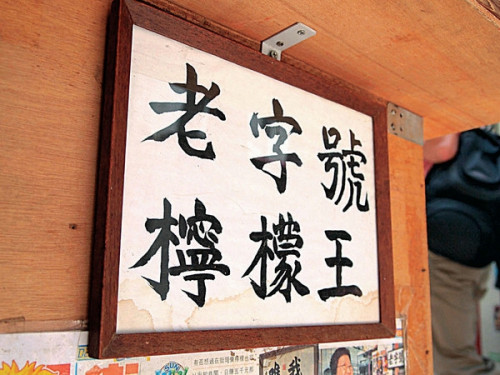 老字號
檸檬王
我